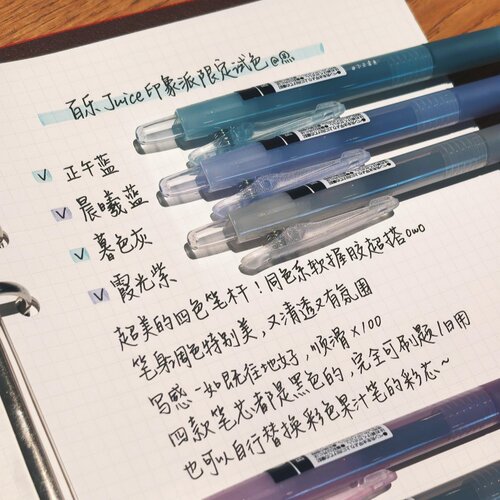 百乐Juice印象派限定试色@
正午蓝
晨曦蓝
暮色灰
霞光紫
超美的四色笔杆！同色系软握胶超搭owo
笔身调色特别美，又清透又有氛围
写感一如既往地好，顺滑×100
四款笔芯都是黑色的，完全可刷题/日用
也可以自行替换彩色果汁笔的彩芯~